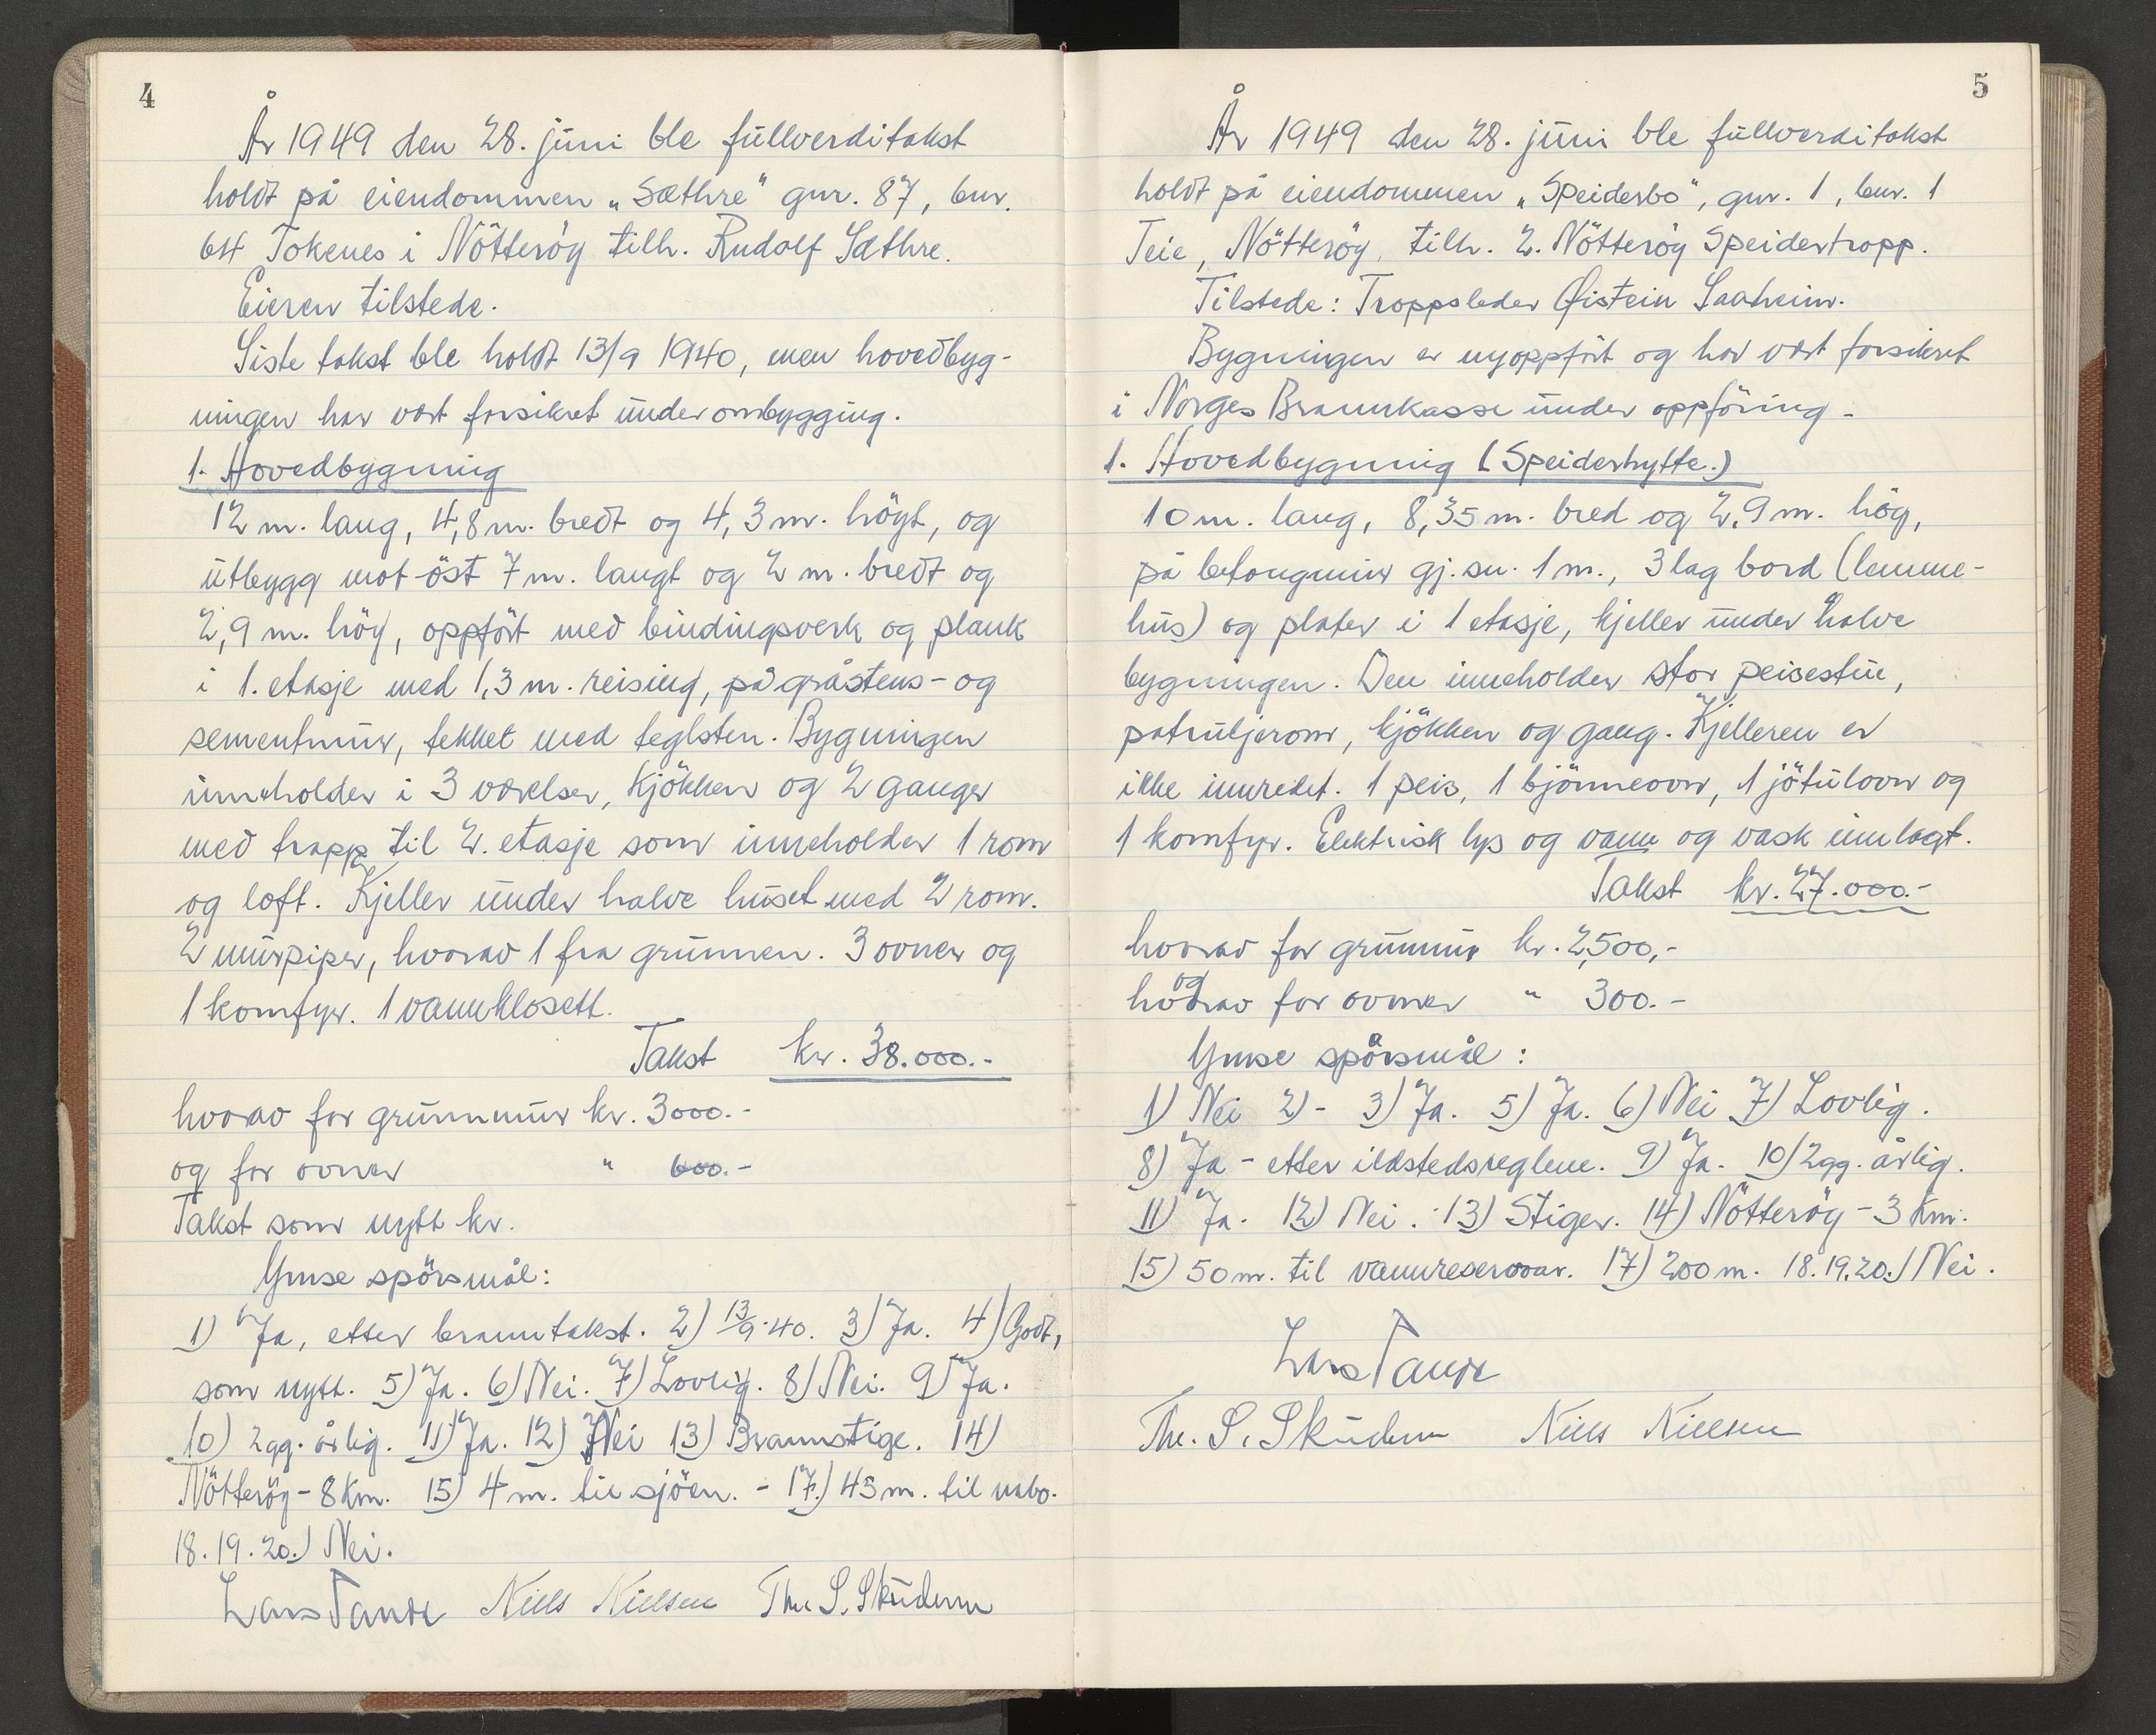 4
År 1949 den 28. juni ble fullverditakst
holdt på eiendommen „Sæthre" gnr. 87, bnr.
64 Tokenes i Nötteröy tilh. Rudolf Sæthre.
Eieren tilstede.
Siste takst ble holdt 13/9 1940, men hovedbyg-
ningen har vært forsikret under ombygging.
1. Hovedbygning
12 m. lang, 4,8 m. bredt og 4,3 m. höyt, og
utbygg mot öst 7 m. langt og 2 m. bredt og
2,9 m. höy, oppfört med bindingsverk og plank
i 1. etasje med 1,3 m. reising, på gråstens- og
sementmur, tekket med teglsten. Bygningen
inneholder i 3 værelser, kjökken og 2 ganger
med trapp til 2. etasje som inneholder 1 rom
og loft. Kjeller under halve huset med 2 rom.
2 murpiper, hvorav 1 fra grunnen. 3 ovner og
1 komfyr. 1 vannklosett.
Takst kr. 38.000.-
hvorav for grunnmur kr. 3000.-
og for ovner " 600.-
Takst som nytt kr.
Ymse spörsmål:
1) Ja, etter branntakst. 2) 13/9-40. 3) Ja. 4) Godt,
som nytt. 5) Ja. 6) Nei. 7) Lovlig. 8) Nei. 9) Ja.
10) 2 gg. årlig. 11) Ja. 12) Nei 13) Brannstige. 14)
Nötteröy - 8 km. 15) 4 m. til sjöen. - 17.) 45 m. til nabo.
18. 19. 20.) Nei.
Lars Tande Niels Nielsen Th. S. Skudem
5
År 1949 den 28. juni ble fullverditakst
holdt på eiendommen „Speiderbo", gnr. 1, bnr. 1
Teie, Nötteröy, tilh. 2. Nötteröy Speidertropp.
Tilstede: Troppsleder Øistein Saaheim.
Bygningen er nyoppfört og har vært forsikret
i Norges Brannkasse under oppföring -
1. Hovedbygning (Speiderhytte.)
10 m. lang, 8,35 m. bred og 2,9 m. höy,
på betongmur gj.sn. 1 m., 3 lag bord (lemme-
hus) og plater i 1 etasje, kjeller under halve
bygningen. Den inneholder stor peisestue,
patruljerom, kjökken og gang. Kjelleren er
ikke innredet. 1 peis, 1 bjönneovn, 1 jötulovn og
1 komfyr. Elektrisk lys og vann og vask innlagt.
Takst kr. 27.000.-
hvorav for grunnmur kr. 2,500,-
og
hvorav for ovner " 300.-
Ymse spörsmål:
1) Nei 2) - 3) Ja. 5) Ja. 6) Nei 7) Lovlig.
8) Ja - etter ildstedsreglene. 9) Ja. 10) 2 gg. årlig.
11) Ja. 12) Nei. 13) Stiger. 14) Nötteröy - 3 km.
15) 50 m. til vannreservoar. 17) 200 m. 18. 19. 20.) Nei.
Lars Tande
Th. S. Skudem Niels Nielsen